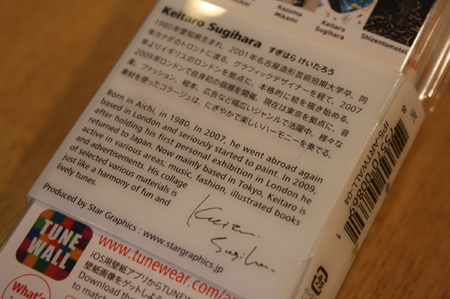 Kazuma
Mikami
Keitaro
Sugihara
Shizentomotel
Keitaro Sugihara すぎはら けいたろう
1980年愛知県生まれ、2001年名古屋造形芸術短期大学卒。同
年カナダのトロントに渡る。グラフィックデザイナーを経て、2007
年よりイギリスのロンドンを拠点に、本格的に絵を描き始める。
2009年ロンドンで自身初の個展を開催。現在は東京を拠点に、音
楽、ファッション、絵本、広告など幅広いジャンルで活躍中。様々な
素材を使ったコラージュは、にぎやかで楽しいハーモニーを奏でる。
Born in Aichi, in 1980. In 2007, he went abroad again
based in London and seriously started to paint. In 2009,
after holding his first personal exhibition in London he
returned to Tokyo. Now mainly based in Tokyo, Keitaro is
active in various areas; music, fashion, illustrated books
and advertisements. His collage
of selected various materials is
just like a harmony of fun and
lively tunes.
Produced by Star Graphics : www.stargraphics.jp
TUNE
WALL
www.tunewear.com/
iOS用壁紙アプリからTUNEW
壁紙画像をゲットしよう
Download the
to match
What's